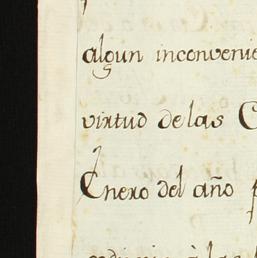 algun inconvenie
virtud de las C
Enero del año